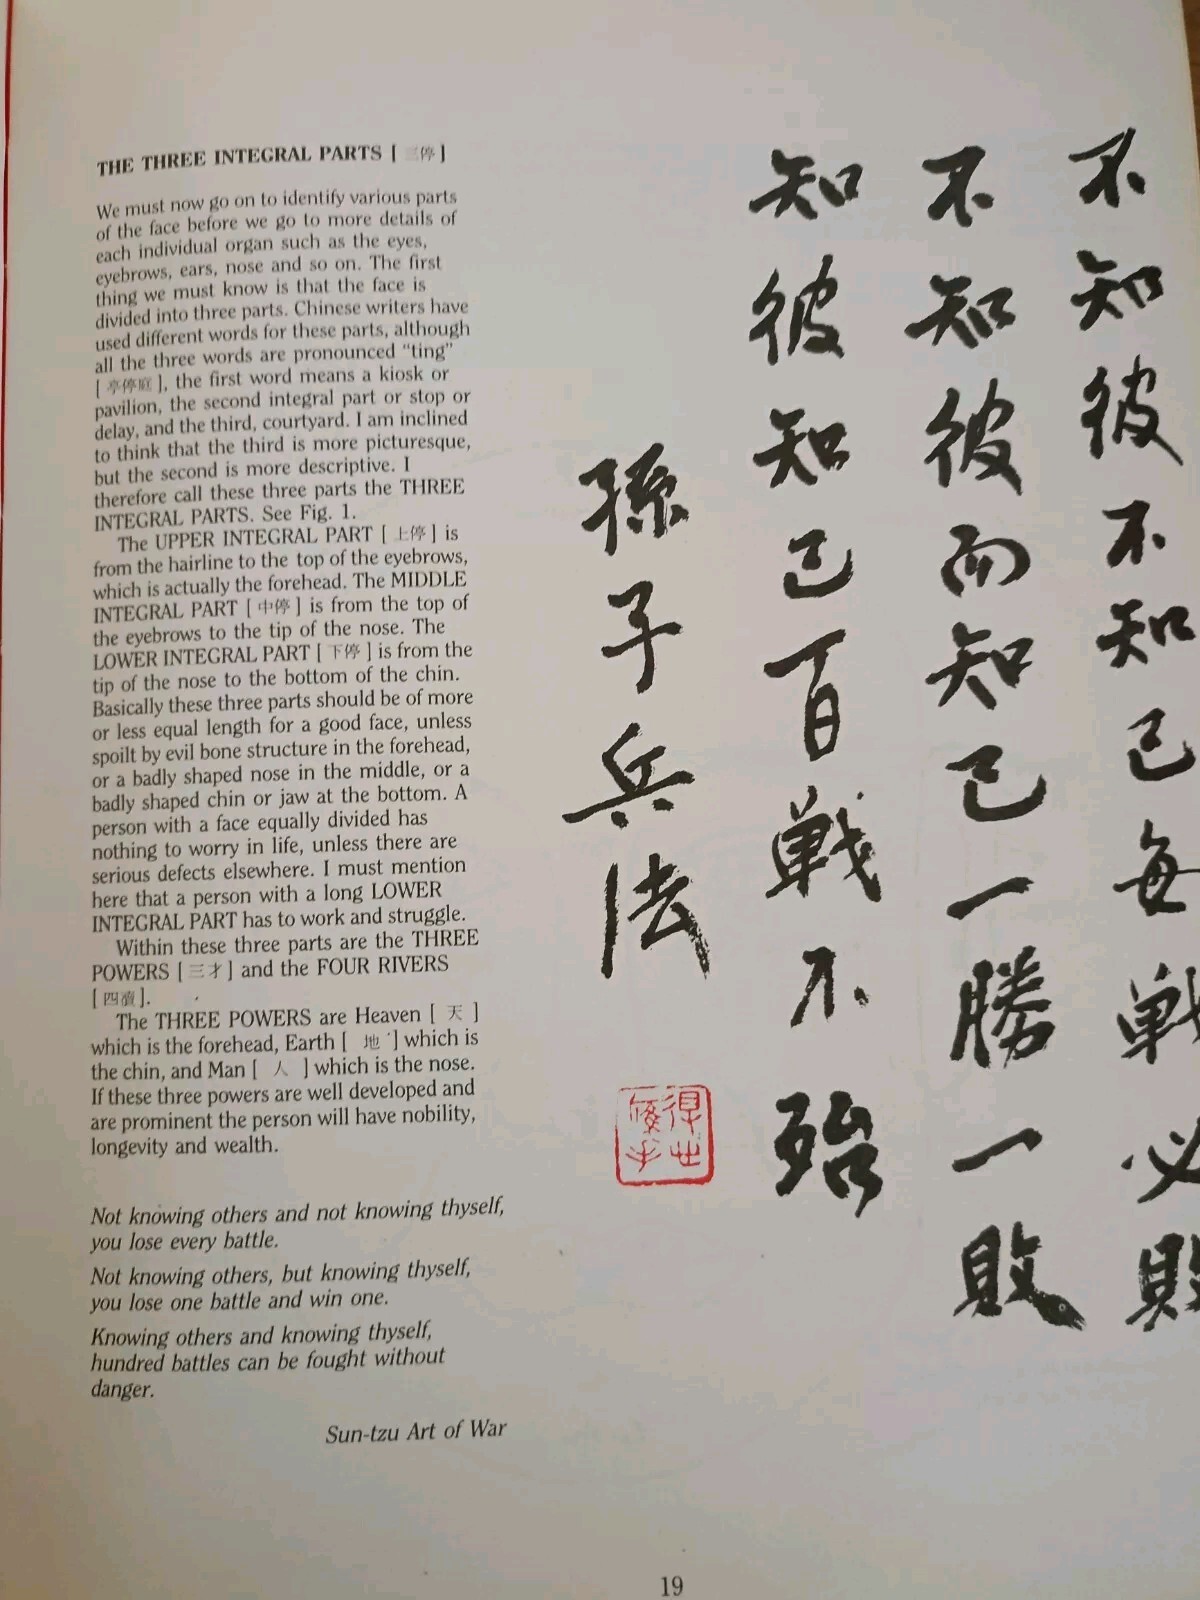 THE THREE INTEGRAL PARTS [三停]
We must now go on to identify various parts
of the face before we go to more details of
each individual organ such as the eyes,
eyebrows, ears, nose and so on. The first
thing we must know is that the face is
divided into three parts. Chinese writers have
used different words for these parts, although
all the three words are pronounced “ting”
[亭停庭], the first word means a kiosk or
pavilion, the second integral part or stop or
delay, and the third, courtyard. I am inclined
to think that the third is more picturesque,
but the second is more descriptive. I
therefore call these three parts the THREE
INTEGRAL PARTS. See Fig. 1.
The UPPER INTEGRAL PART [上停] is
from the hairline to the top of the eyebrows,
which is actually the forehead. The MIDDLE
INTEGRAL PART [中停] is from the top of
the eyebrows to the tip of the nose. The
LOWER INTEGRAL PART [下停] is from the
tip of the nose to the bottom of the chin.
Basically these three parts should be of more
or less equal length for a good face, unless
spoilt by evil bone structure in the forehead,
or a badly shaped nose in the middle, or a
badly shaped chin or jaw at the bottom. A
person with a face equally divided has
nothing to worry in life, unless there are
serious defects elsewhere. I must mention
here that a person with a long LOWER
INTEGRAL PART has to work and struggle.
Within these three parts are the THREE
POWERS [三才] and the FOUR RIVERS
[四瀆].
The THREE POWERS are Heaven [天]
which is the forehead, Earth [地] which is
the chin, and Man [人] which is the nose.
If these three powers are well developed and
are prominent the person will have nobility,
longevity and wealth.
Not knowing others and not knowing thyself,
you lose every battle.
Not knowing others, but knowing thyself,
you lose one battle and win one.
Knowing others and knowing thyself,
hundred battles can be fought without
danger.
Sun-tzu Art of War
不知彼不知己每戦必敗
不知彼而知己一勝一敗
知彼知己百戦不殆
孫子兵法
19